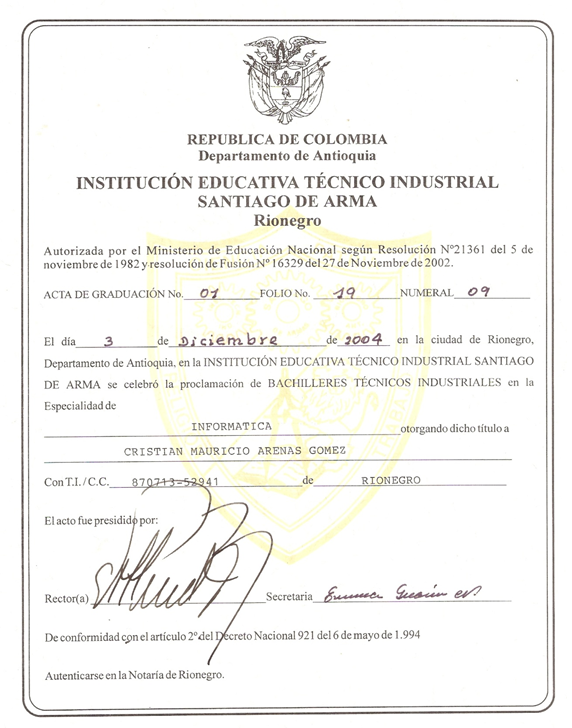 REPUBLICA DE COLOMBIA
Departamento de Antioquia
INSTITUCIÓN EDUCATIVA TÉCNICO INDUSTRIAL
SANTIAGO DE ARMA
Rionegro
Autorizada por el Ministerio de Educación Nacional según Resolución N°21361 del 5 de
noviembre de 1982 y resolución de Fusión N° 16329 del 27 de Noviembre de 2002.
ACTA DE GRADUACIÓN No. 01 FOLIO No. 19 NUMERAL 09
El día 3 de Diciembre de 2004 en la ciudad de Rionegro,
Departamento de Antioquia, en la INSTITUCIÓN EDUCATIVA TÉCNICO INDUSTRIAL SANTIAGO
DE ARMA se celebró la proclamación de BACHILLERES TÉCNICOS INDUSTRIALES en la
Especialidad de
INFORMATICA otorgando dicho título a
CRISTIAN MAURICIO ARENAS GOMEZ
Con T.I. / C.C. 870713-52941 de RIONEGRO
El acto fue presidido por:
Rector(a) Secretaria
De conformidad con el artículo 2° del Decreto Nacional 921 del 6 de mayo de 1.994
Autenticarse en la Notaría de Rionegro.